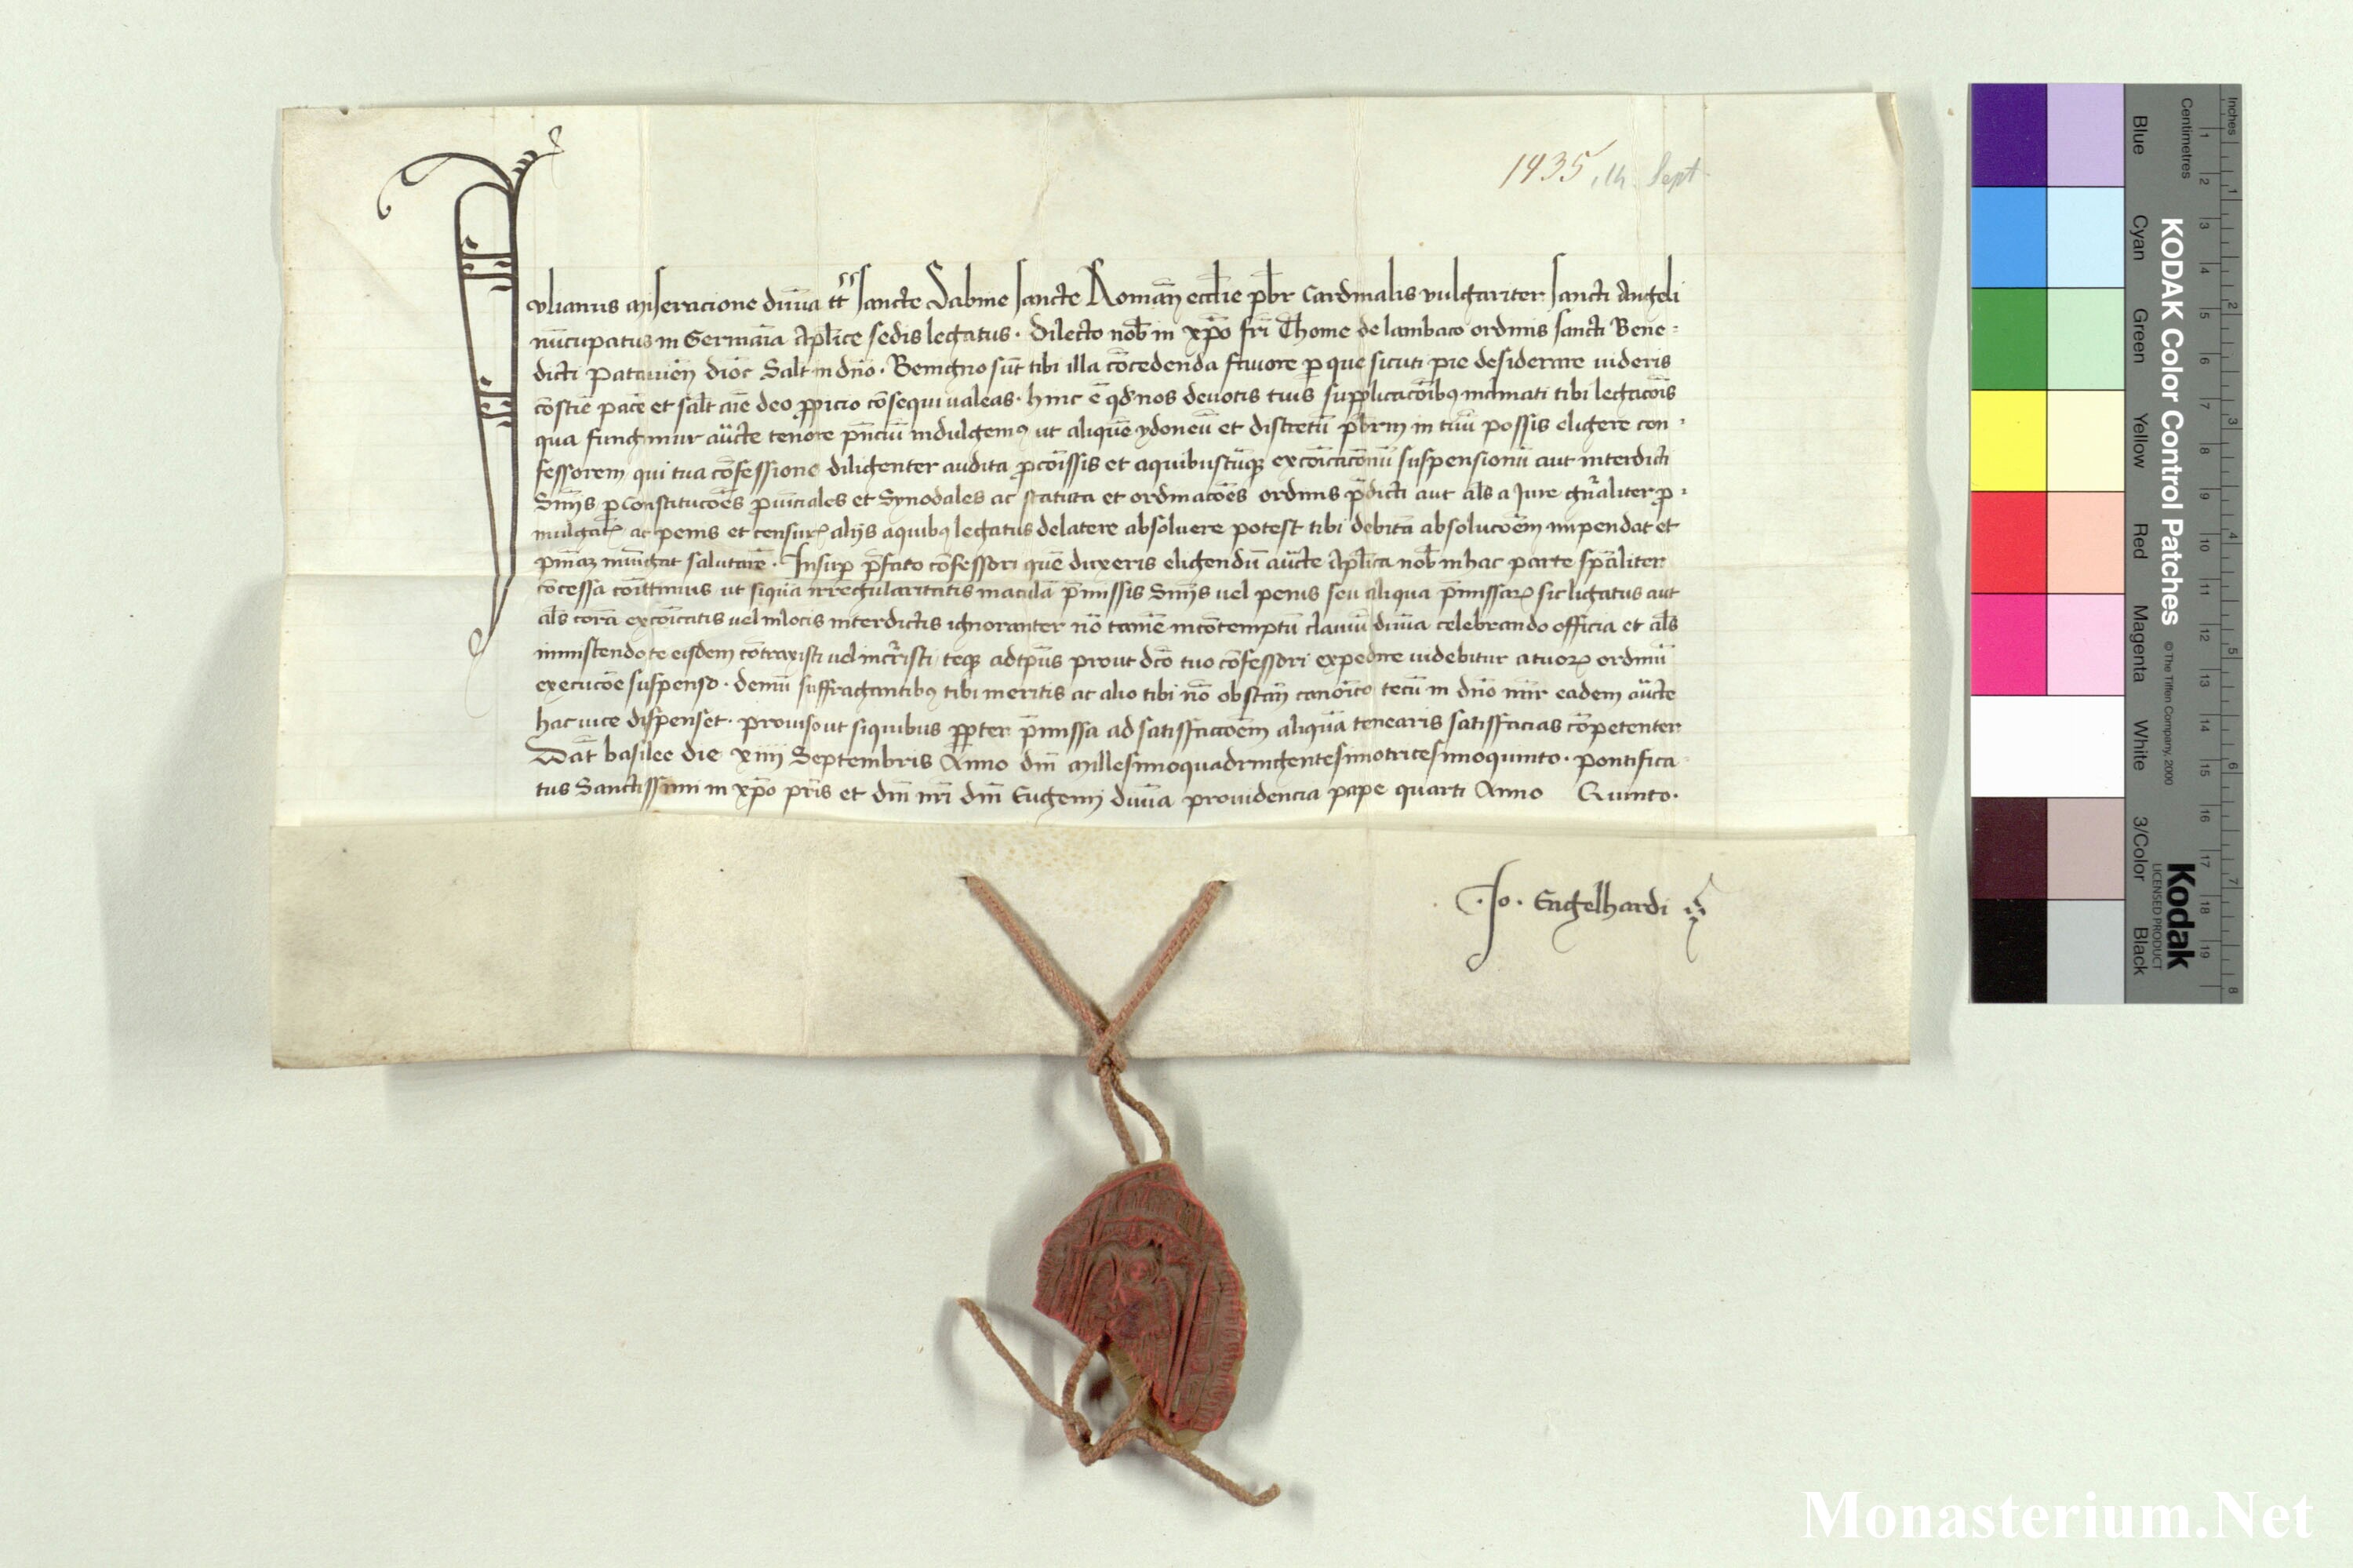 1435 14 Sept
Iulianus miseracione diuīa tt̄ sancte Sabine sancte Romāñ eccl̄ie pb̄r Cardinalis vulgariter sancti Angeli
nūcupatus in Germāia Apl̄ice sedis legatus. Dilecto nob̄ in xp̄o fr̄i Thome de lambaco ordinis sancti Bene=
dicti Patauieñ dioc̄ Salt̄ in dn̄o. Benigno sūt tibi illa cōcedenda fauore ꝑ que sicuti pie desiderare uideris
cōsciē pacē et salt̄ aīe deo ꝓpicio cōsequi ualeas. hinc ē qd̄ nos deuotis tuis supplicacōibꝰ inclinati tibi legacōis
qua fungimur auc̄te tenore pn̄ciū indulgemꝰ ut aliquē ydoneū et discretū pb̄rm in tuū possis eligere con=
fessorem qui tua cōfessione diligenter audita ꝓ cōissis et aquibuscūqꝫ excōicacōnū suspensionū aut interdicti
Sn̄ijs ꝑ Constitucōes ꝓuīciales et Synodales ac statuta et ordinacōes ordinis p̄dicti aut al̄s a Jure gn̄aliter ꝓ=
mulgatꝭ ac penis et censurꝭ alijs aquibꝰ legatus delatere absoluere potest tibi debitā absolucōem impendat et
pn̄iaꝫ iniūgat salutarē. Insuꝑ p̄fato cōfessori quē duxeris eligendū auc̄te Apl̄ica nob̄ in hac parte spāliter
cōcessa cōittimus ut siquā irregularitatis maculā p̄missis Sn̄ijs uel penis seu aliqua p̄missaꝝ sic ligatus aut
al̄s corā excōicatis uel inlocis interdictis ignoranter nō tamē incōtemptū clauiū diuīa celebrando officia et al̄s
inmiscendo te eisdem cōtraxisti uel incr̄risti teqꝫ adtp̄us prout dc̄o tuo cōfessori expedire uidebitur a tuoꝝ ordinū
execucōe suspenso. demū suffragantibꝰ tibi meritis ac alio tibi nō obstāñ canōico tecū in dn̄o mīr eadem auc̄te
hac uice dispenset. prouiso ut siquibus ꝓpter p̄missa ad satisfaccōem aliquā tenearis satisfacias cōpetenter
Dat̄ basilee die xiiij Septembris Anno dn̄i Millesimoquadringentesimotricesimoquinto. pontifica
tus Sanctissimi in xp̄o pr̄is et dn̄i nr̄i dn̄i Eugenij diuīa prouidencia pape quarti Anno Quinto.
.Jo. Engelhardi
Inches
Centimetres
Blue
Cyan
Green
Yellow
Red
Magenta
White
3/Color
Black
KODAK Color Control Patches
© The Tiffen Company, 2000
Kodak
LICENSED PRODUCT
1 2 3 4 5 6 7 8 9 10 11 12 13 14 15 16 17 18 19
1 2 3 4 5 6 7 8
Monasterium.Net